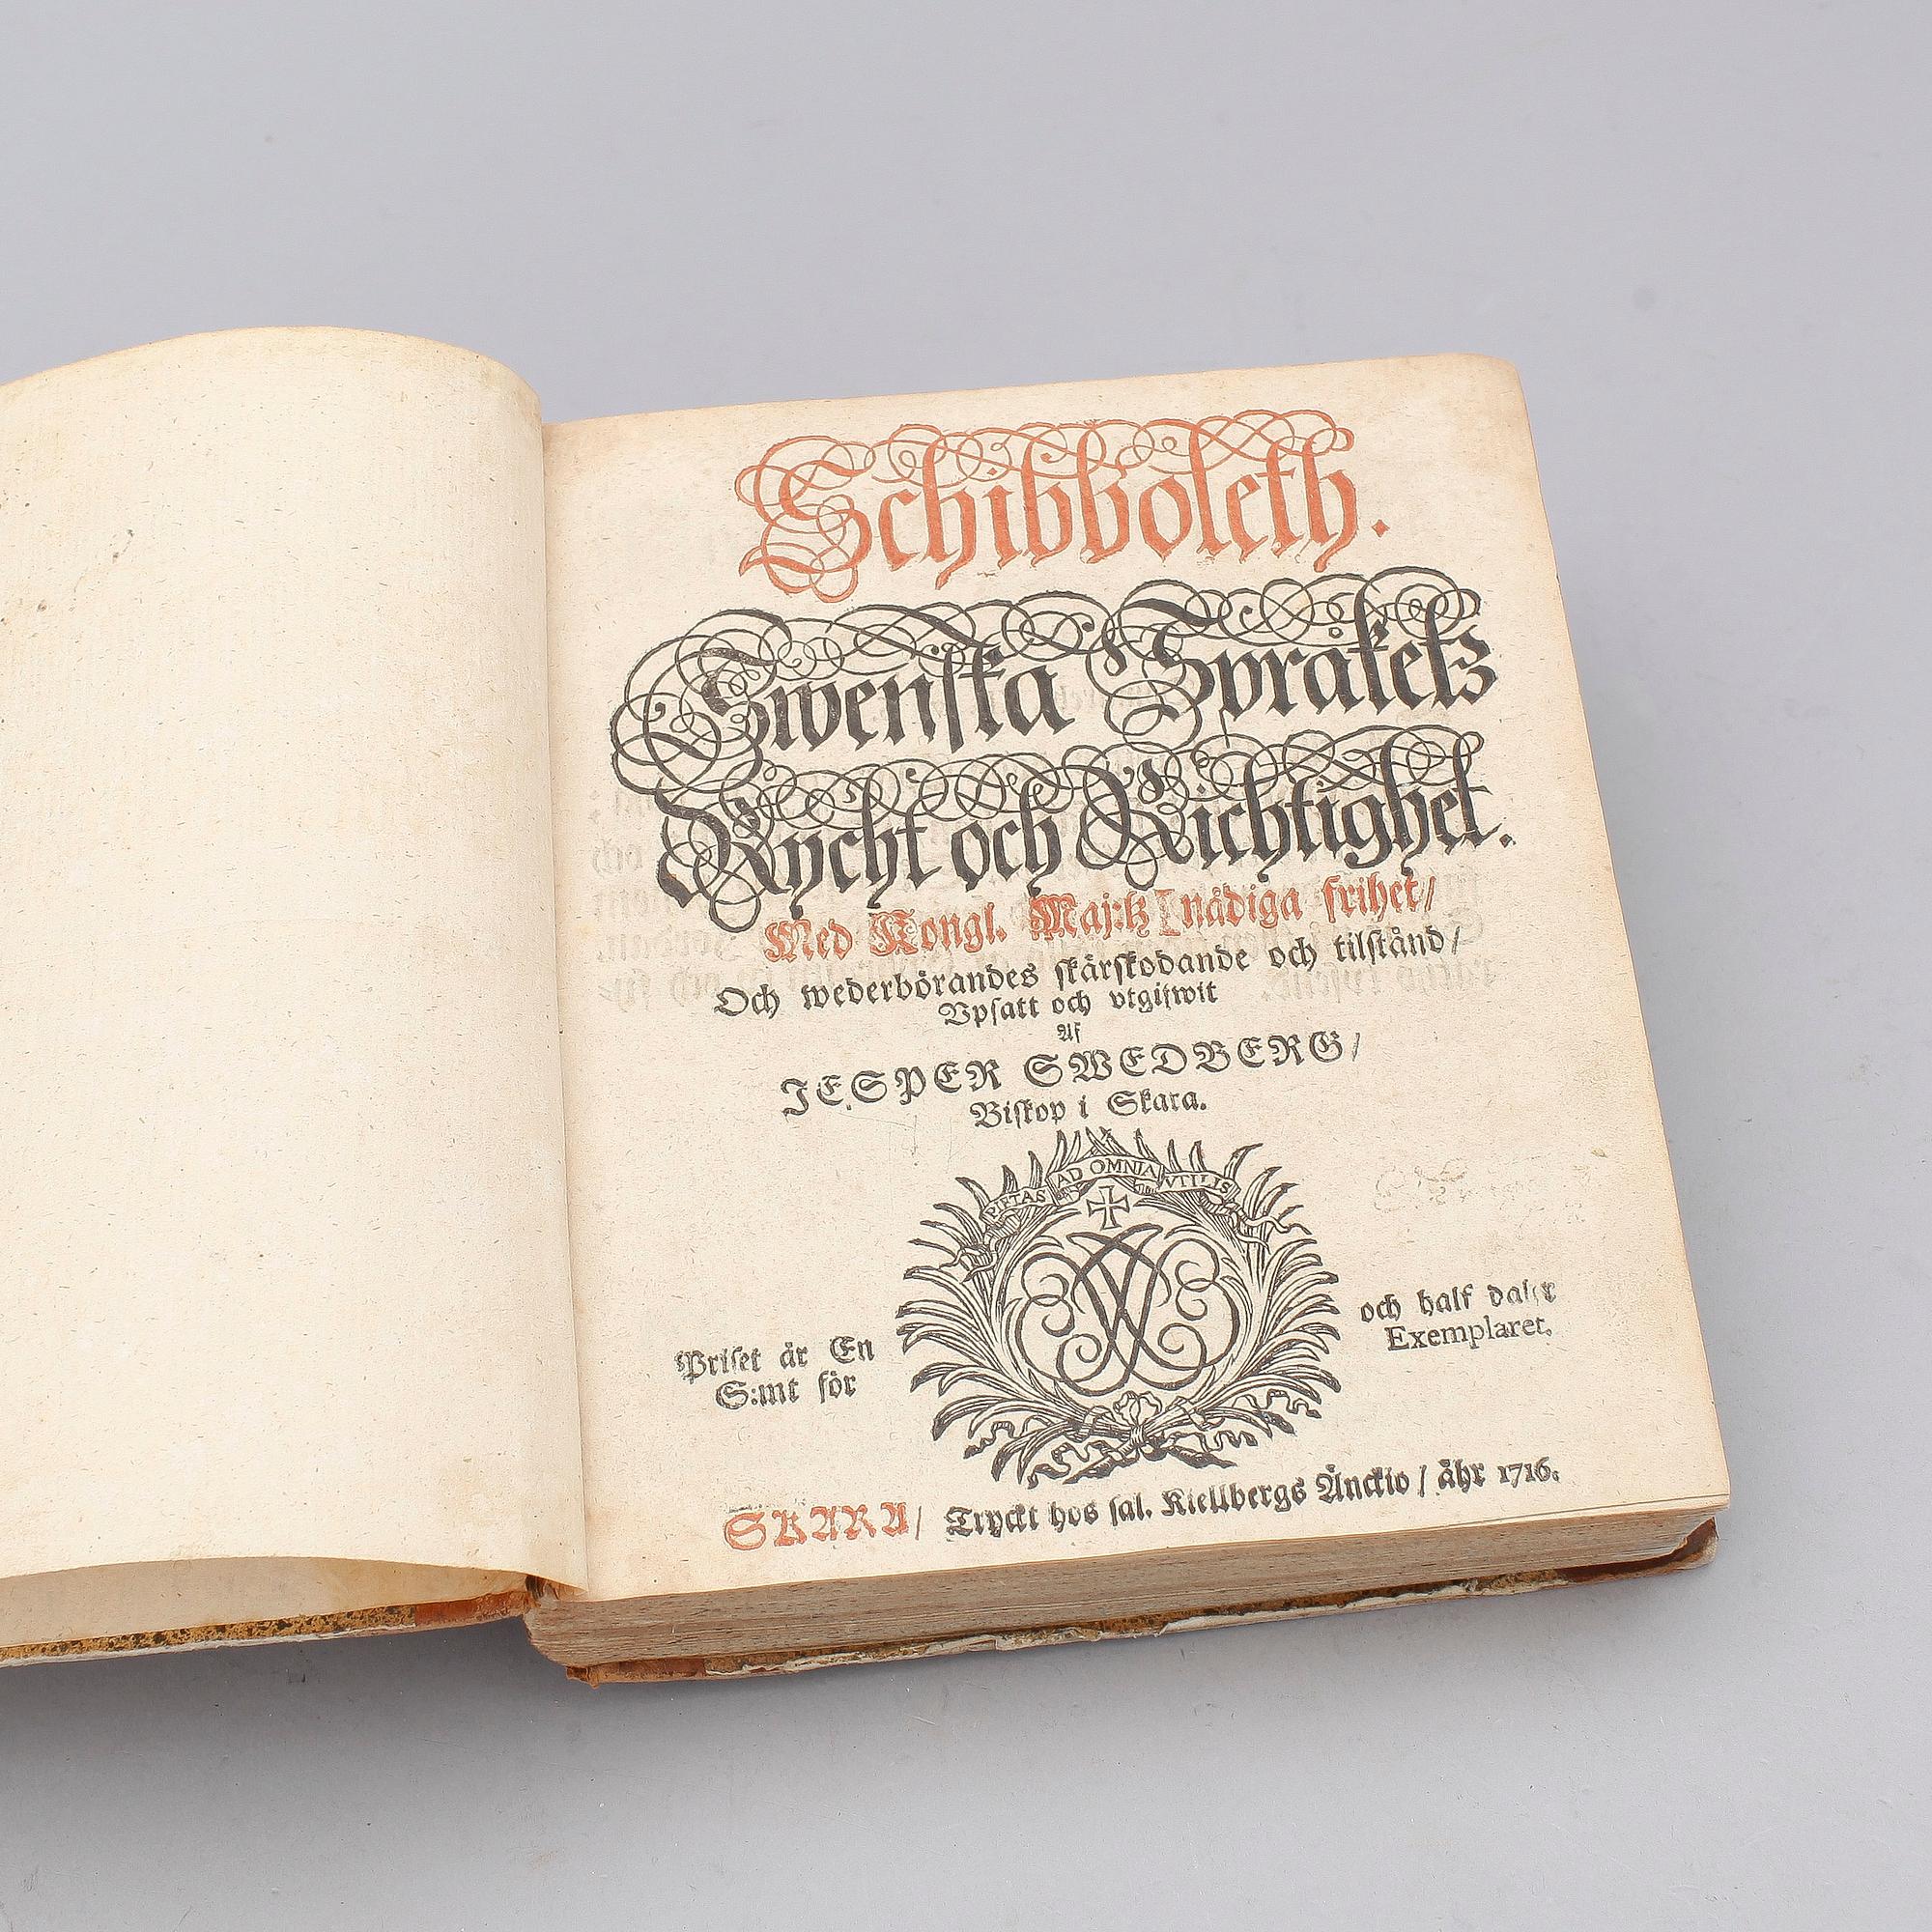 Schibboleth.
Swenska Språketz
Rycht och Richtighet.
Med Kongl. Maj:tz nådiga frihet/
Och wederbörandes skärskodande och tilstånd/
Vpsatt och vtgifwit
Af
JESPER SWEDBERG/
Biskop i Skara.
PIETAS AD OMNIA VTILIS
Priset är En
S:mt för
och half daler
Exemplaret.
SKARA/ Tryckt hos sal. Kiellbergs Änckio / åhr 1716.